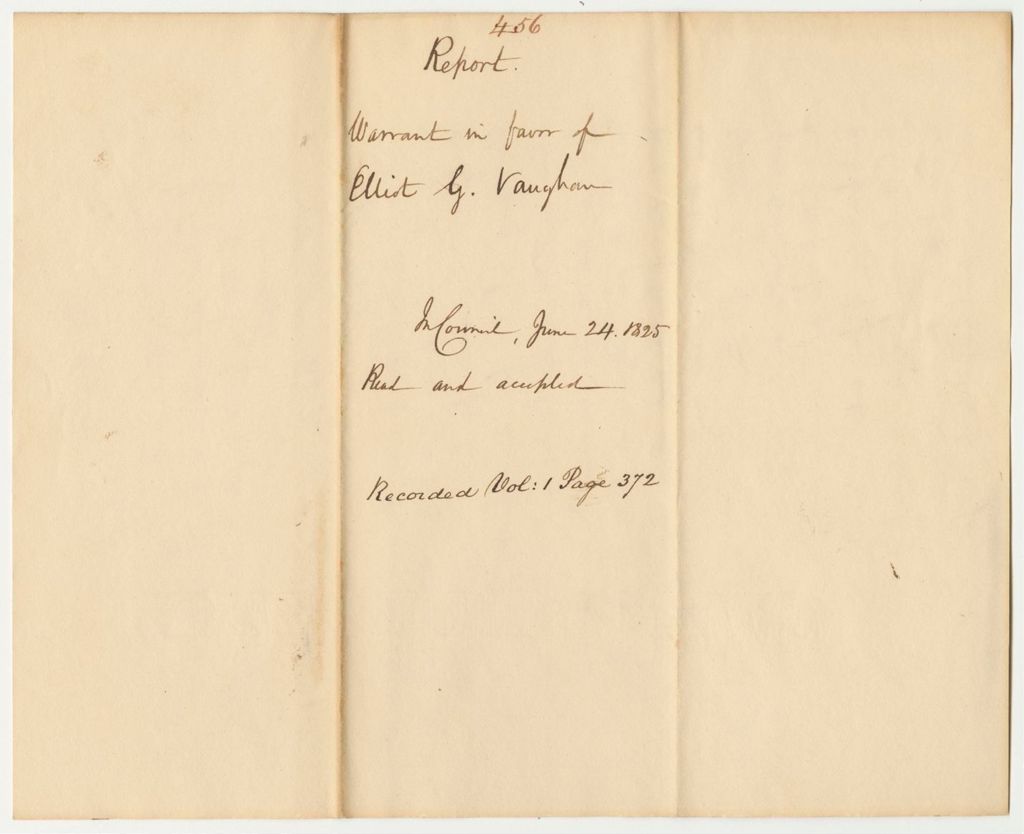 456
Report.
Warrant in favor of
Elliot G. Vaughan
In Council, June 24. 1825
Read and accepted
Recorded Vol: 1 Page 372